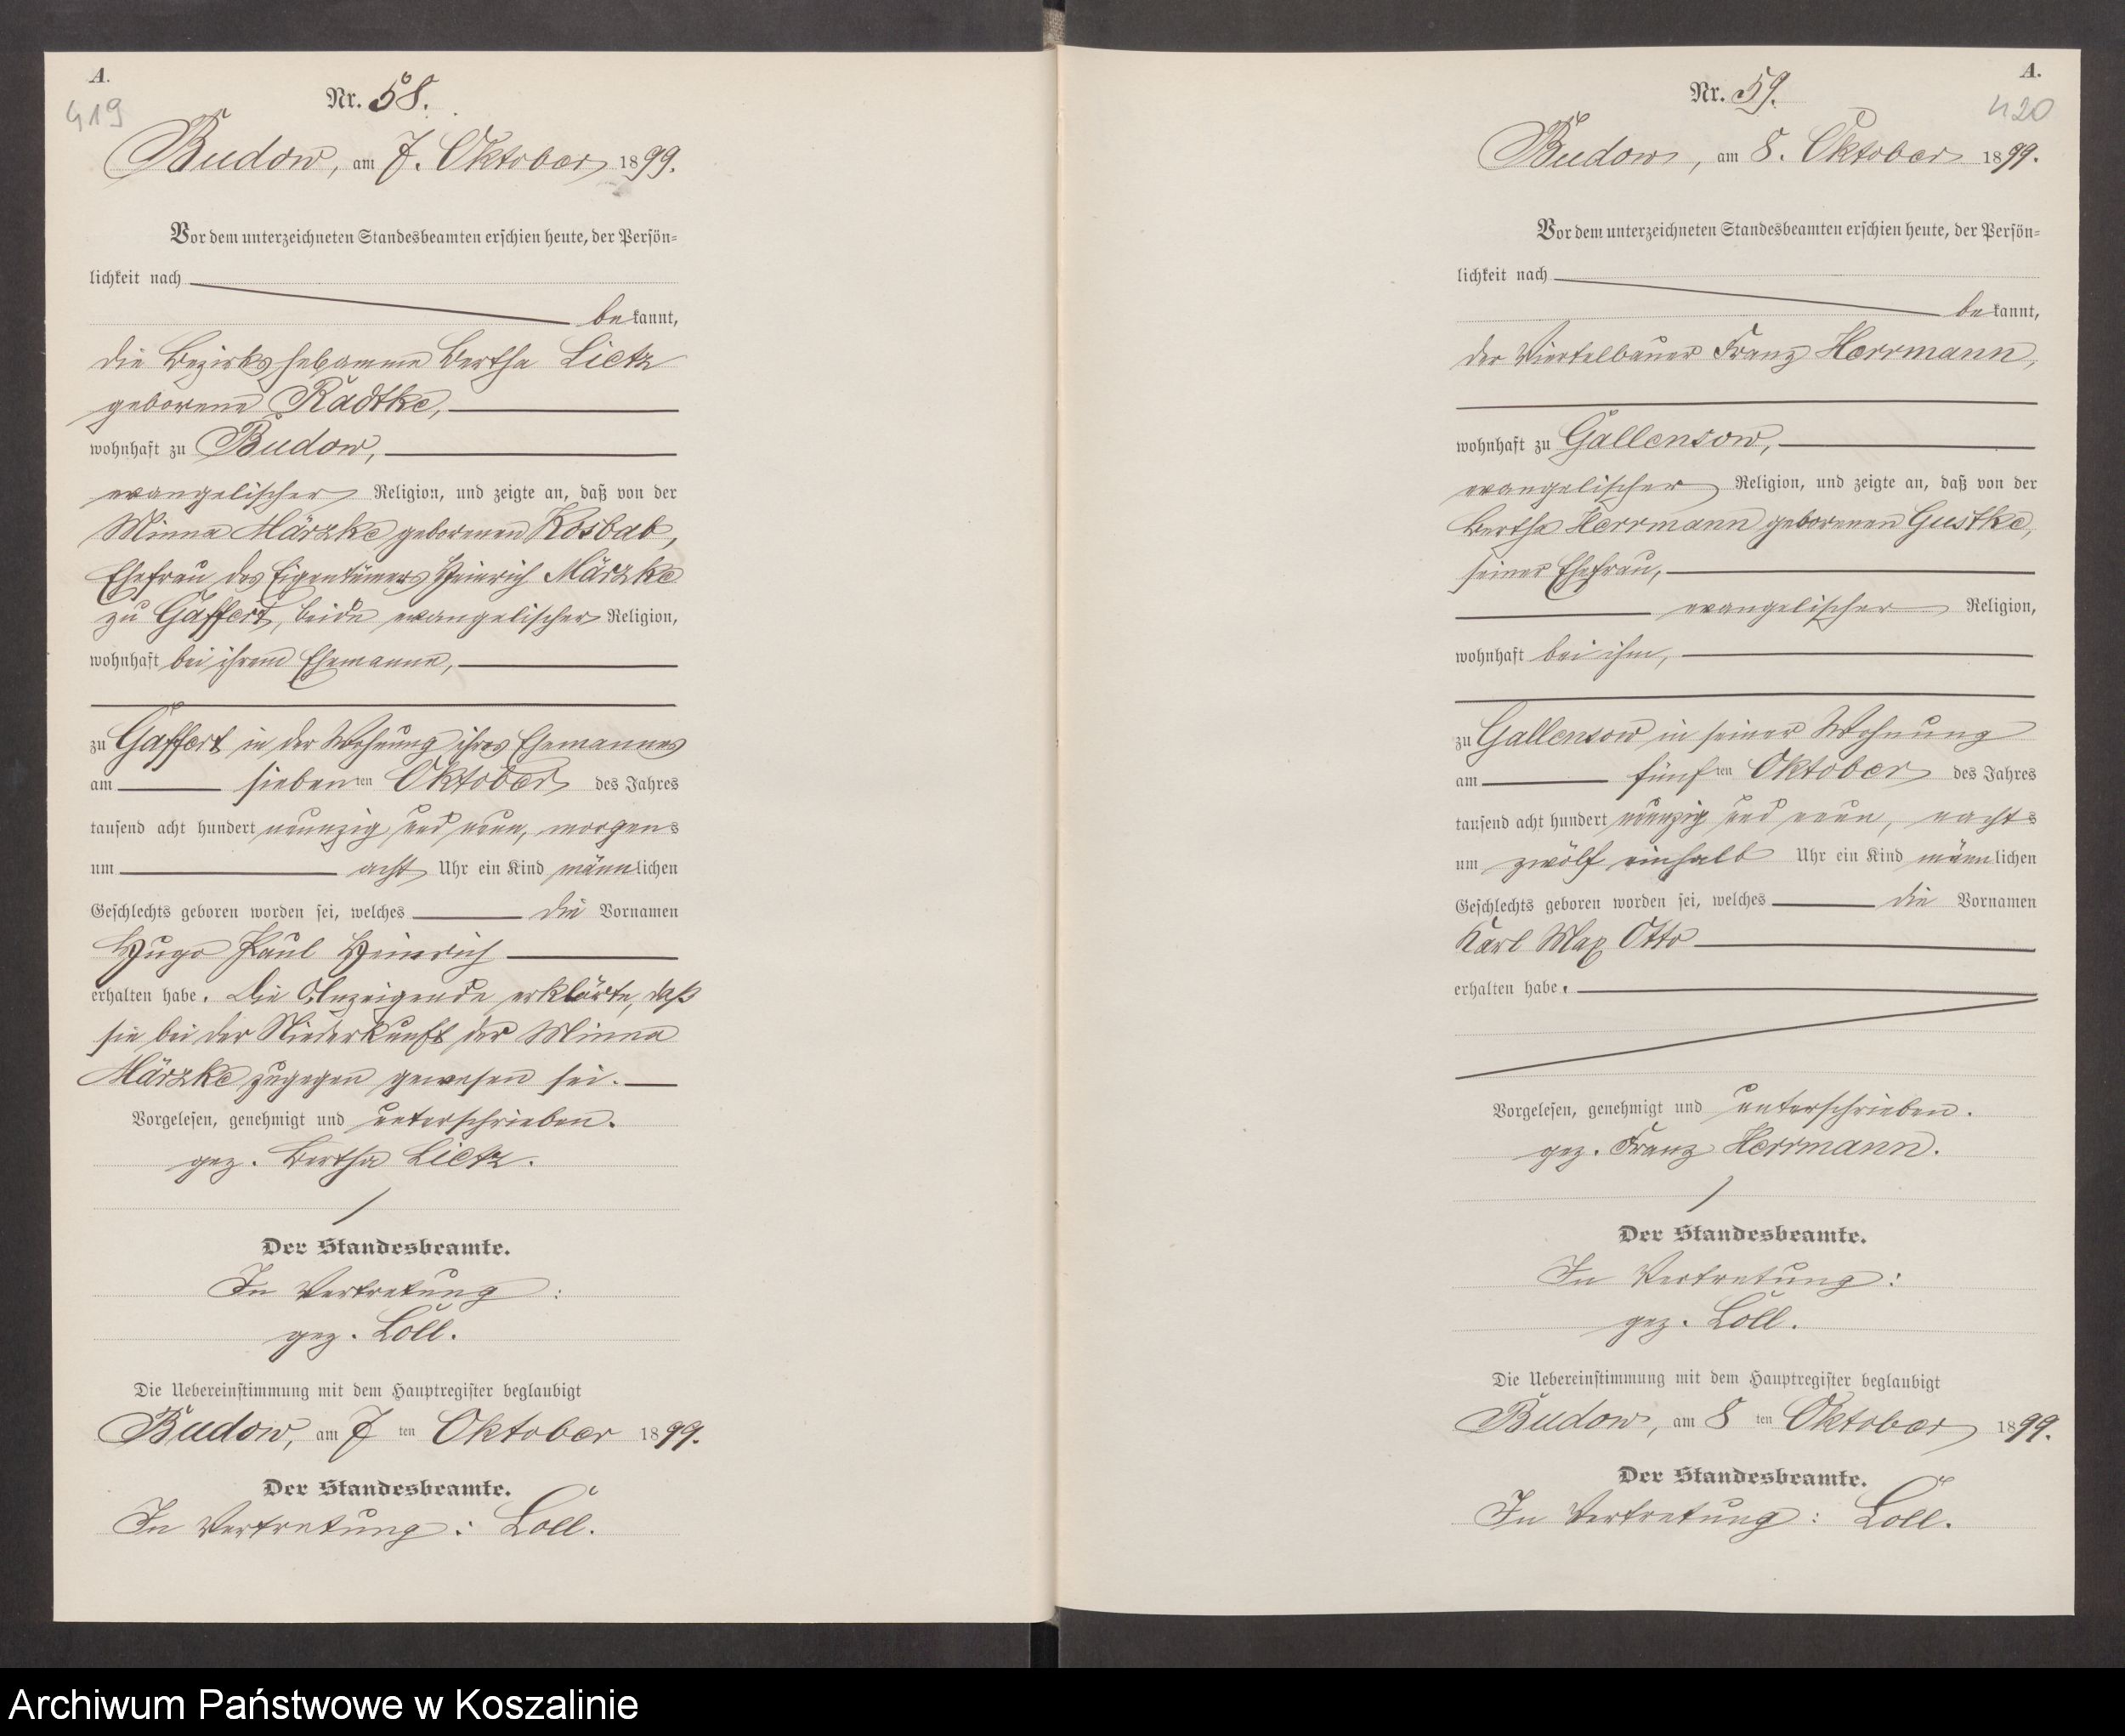 A.
419
Nr. 58.
Budow, am 7. Oktober 1899.
Vor dem unterzeichneten Standesbeamten erschien heute, der Persön-
lichkeit nach
bekannt,
die Bezirkshebamme Bertha Lietz
geborene Radtke,
wohnhaft zu Budow,
evangelischer Religion, und zeigte an, daß von der
Minna Märzke geborenen Kosbab,
Ehefrau des Eigentümers Heinrich Märzke
zu Gaffert, beide evangelischer Religion,
wohnhaft bei ihrem Ehemanne,
zu Gaffert in der Wohnung ihres Ehemannes
am siebenten Oktober des Jahres
tausend acht hundert neunzig und neun, morgens
um acht Uhr ein Kind männlichen
Geschlechts geboren worden sei, welches die Vornamen
Hugo Paul Heinrich
erhalten habe. Die Anzeigende erklärte, daß
sie bei der Niederkunft der Minna
Märzke zugegen gewesen sei.
Vorgelesen, genehmigt und unterschrieben.
gez. Bertha Lietz.
Der Standesbeamte.
In Vertretung:
gez. Loll.
Die Uebereinstimmung mit dem Hauptregister beglaubigt
Budow, am 7 ten Oktober 1899.
Der Standesbeamte.
In Vertretung: Loll.
A.
420
Nr. 59.
Budow, am 8. Oktober 1899.
Vor dem unterzeichneten Standesbeamten erschien heute, der Persön-
lichkeit nach
bekannt,
der Viertelbauer Franz Herrmann,
wohnhaft zu Gallensow,
evangelischer Religion, und zeigte an, daß von der
Bertha Herrmann geborenen Gustke,
seiner Ehefrau,
evangelischer Religion,
wohnhaft bei ihm,
zu Gallensow in seiner Wohnung
am fünften Oktober des Jahres
tausend acht hundert neunzig und neun, nachts
um zwölf einhalb Uhr ein Kind männlichen
Geschlechts geboren worden sei, welches die Vornamen
Karl Max Otto
erhalten habe.
Vorgelesen, genehmigt und unterschrieben.
gez. Franz Herrmann.
Der Standesbeamte.
In Vertretung:
gez. Loll.
Die Uebereinstimmung mit dem Hauptregister beglaubigt
Budow, am 8 ten Oktober 1899.
Der Standesbeamte.
In Vertretung: Loll.
Archiwum Państwowe w Koszalinie